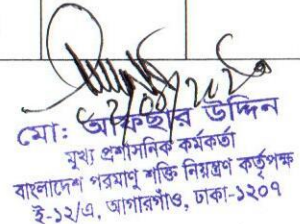 মো: আফছার উদ্দিন
মুখ্য প্রশাসনিক কর্মকর্তা
বাংলাদেশ পরমাণু শক্তি নিয়ন্ত্রণ কর্তৃপক্ষ
ই-১২/এ, আগারগাঁও, ঢাকা-১২০৭